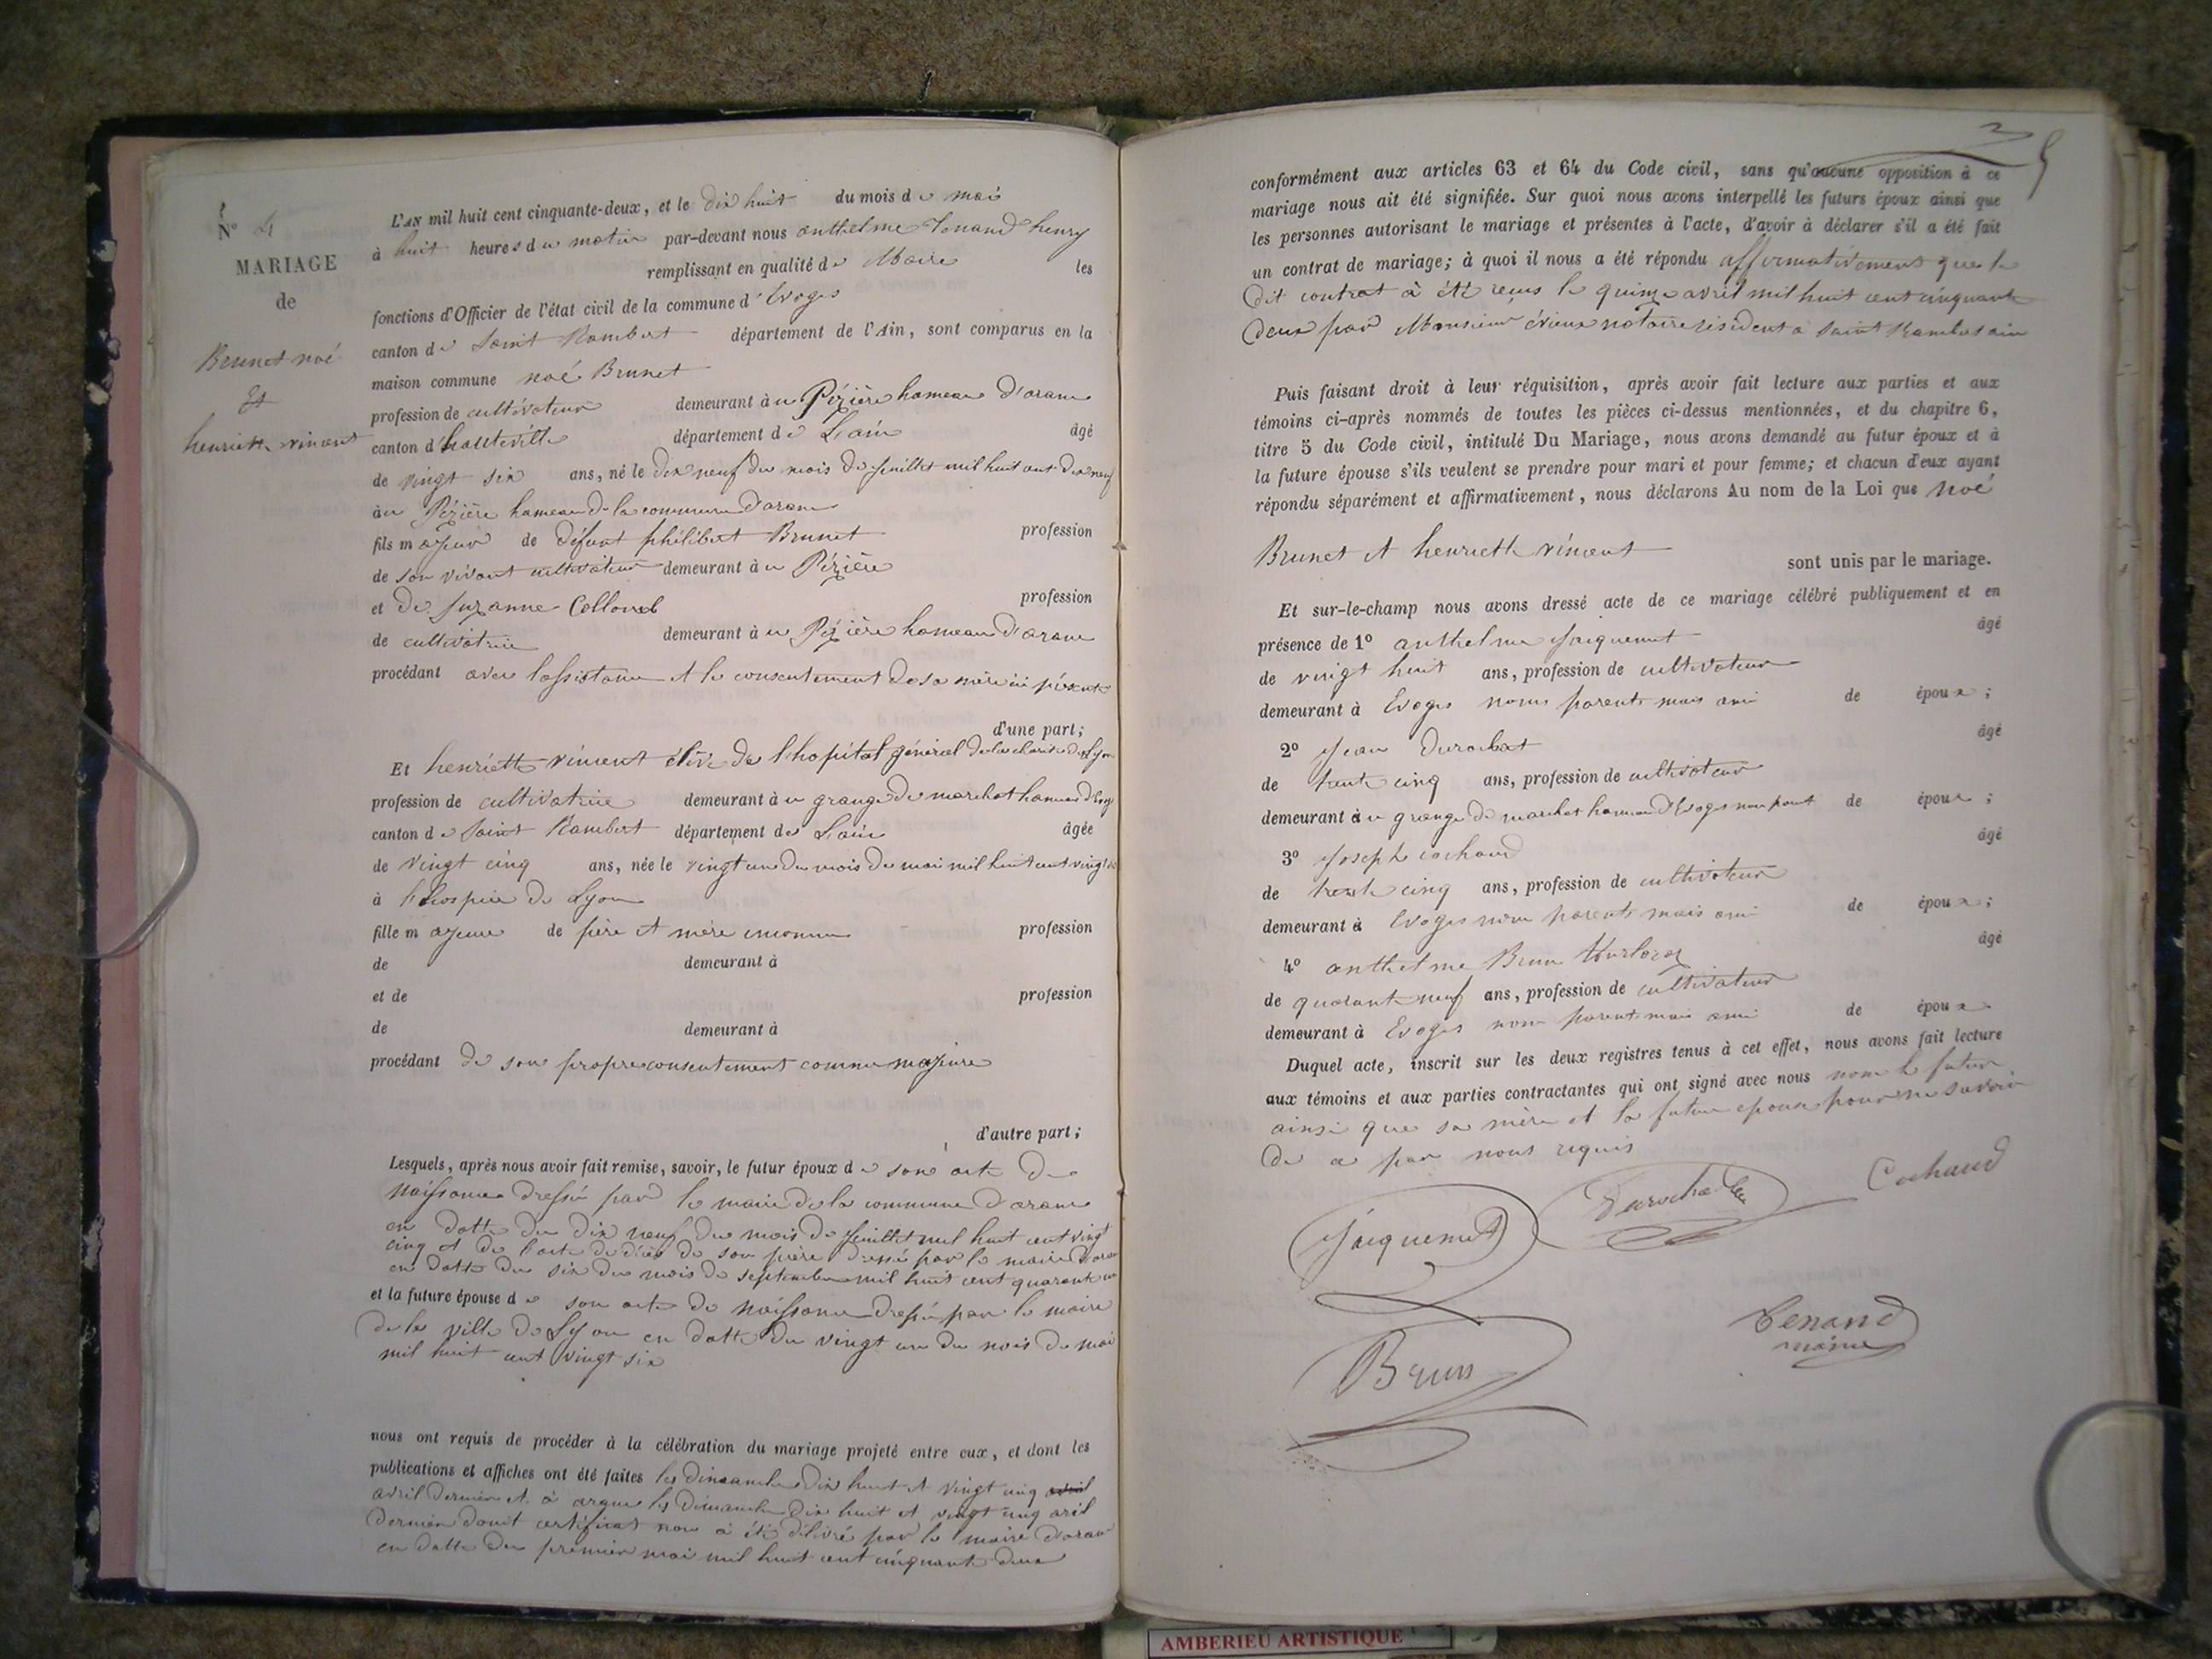 N° 4
MARIAGE
de
Brunet noé
Et
henriette vincent
L'AN mil huit cent cinquante-deux, et le dix huit du mois de mai
à huit heures du matin par-devant nous anthelme Tenand henry
remplissant en qualité de Maire les
fonctions d'Officier de l'état civil de la commune d'Evoges
canton de Saint Rambert département de l'Ain, sont comparus en la
maison commune noé Brunet
profession de cultivateur demeurant à u Pézière hameau d'arane
canton d'hauteville département de L'ain âgé
de vingt six ans, né le dix neuf du mois de juillet mil huit cent
àu Pézière hameau de la commune d'arane
fils majeur de défunt philibert Brunet profession
de son vivant cultivateur demeurant à u Pézière
et de Suzanne Collomb profession
de cultivatrice demeurant à u Pézière hameau d'arane
procédant avec lassistance et le consentement de sa mère ici présente
d'une part;
Et henriette vincent élève de l'hopital général de la charité de Lyon
profession de cultivatrice demeurant à u grange de marchat hameau d'Evoges
canton de Saint Rambert département de L'ain âgée
de vingt cinq ans, née le vingt un du mois de mai mil huit cent vingt
à l'hospice de Lyon
fille majeure de père et mère inconnu profession
de demeurant à
et de profession
de demeurant à
procédant de son propre consentement comme majeure
d'autre part;
Lesquels, après nous avoir fait remise, savoir, le futur époux de son acte de
naissance dressé par le maire de la commune d'arane
en datte du dix neuf du mois de juillet mil huit cent vingt
cinq et de l'acte de décès de son père dressé par le maire d'arane
en datte du six du mois de septembre mil huit cent quarante
et la future épouse de son acte de naissance dressé par le maire
de la ville de Lyon en datte du vingt un du mois de mai
mil huit cent vingt six
nous ont requis de procéder à la célébration du mariage projeté entre eux, et dont les
publications et affiches ont été faites les dimanches dix huit et vingt cinq avril
avril dernier et à arane les dimanches dix huit et vingt cinq avril
dernier dont certificat nous à été délivré par le maire d'arane
en datte du premier mai mil huit cent cinquante deux
conformément aux articles 63 et 64 du Code civil, sans qu'aucune opposition à ce
mariage nous ait été signifiée. Sur quoi nous avons interpellé les futurs époux ainsi que
les personnes autorisant le mariage et présentes à l'acte, d'avoir à déclarer s'il a été fait
un contrat de mariage; à quoi il nous a été répondu affirmativement que le
dit contrat à été reçus le quinze avril mil huit cent cinquante
deux par Monsieur notaire résident à Saint Rambert ain
Puis faisant droit à leur réquisition, après avoir fait lecture aux parties et aux
témoins ci-après nommés de toutes les pièces ci-dessus mentionnées, et du chapitre 6,
titre 5 du Code civil, intitulé Du Mariage, nous avons demandé au futur époux et à
la future épouse s'ils veulent se prendre pour mari et pour femme; et chacun d'eux ayant
répondu séparément et affirmativement, nous déclarons Au nom de la Loi que Noé
Brunet et henriette vincent
sont unis par le mariage.
Et sur-le-champ nous avons dressé acte de ce mariage célébré publiquement et en
présence de 1° anthelme Jacquemet âgé
de vingt huit ans, profession de cultivateur
demeurant à Evoges nom parents mais ami de époux;
2° Jean Durochat âgé
de trente cinq ans, profession de cultivateur
demeurant à u grange de marchat hameau d'Evoges non parent de époux;
3° Joseph Cochaud âgé
de trente cinq ans, profession de cultivateur
demeurant à Evoges nom parents mais ami de époux;
4° anthelme Brun âgé
de quarante neuf ans, profession de cultivateur
demeurant à Evoges nom parents mais ami de époux
Duquel acte, inscrit sur les deux registres tenus à cet effet, nous avons fait lecture
aux témoins et aux parties contractantes qui ont signé avec nous nom le futur
ainsi que sa mère et la future epouse pour ne savoir
de ce par nous requis
Jacquemet Durochat Cochaud
Tenand
maire
Brun
AMBERIEU ARTISTIQUE